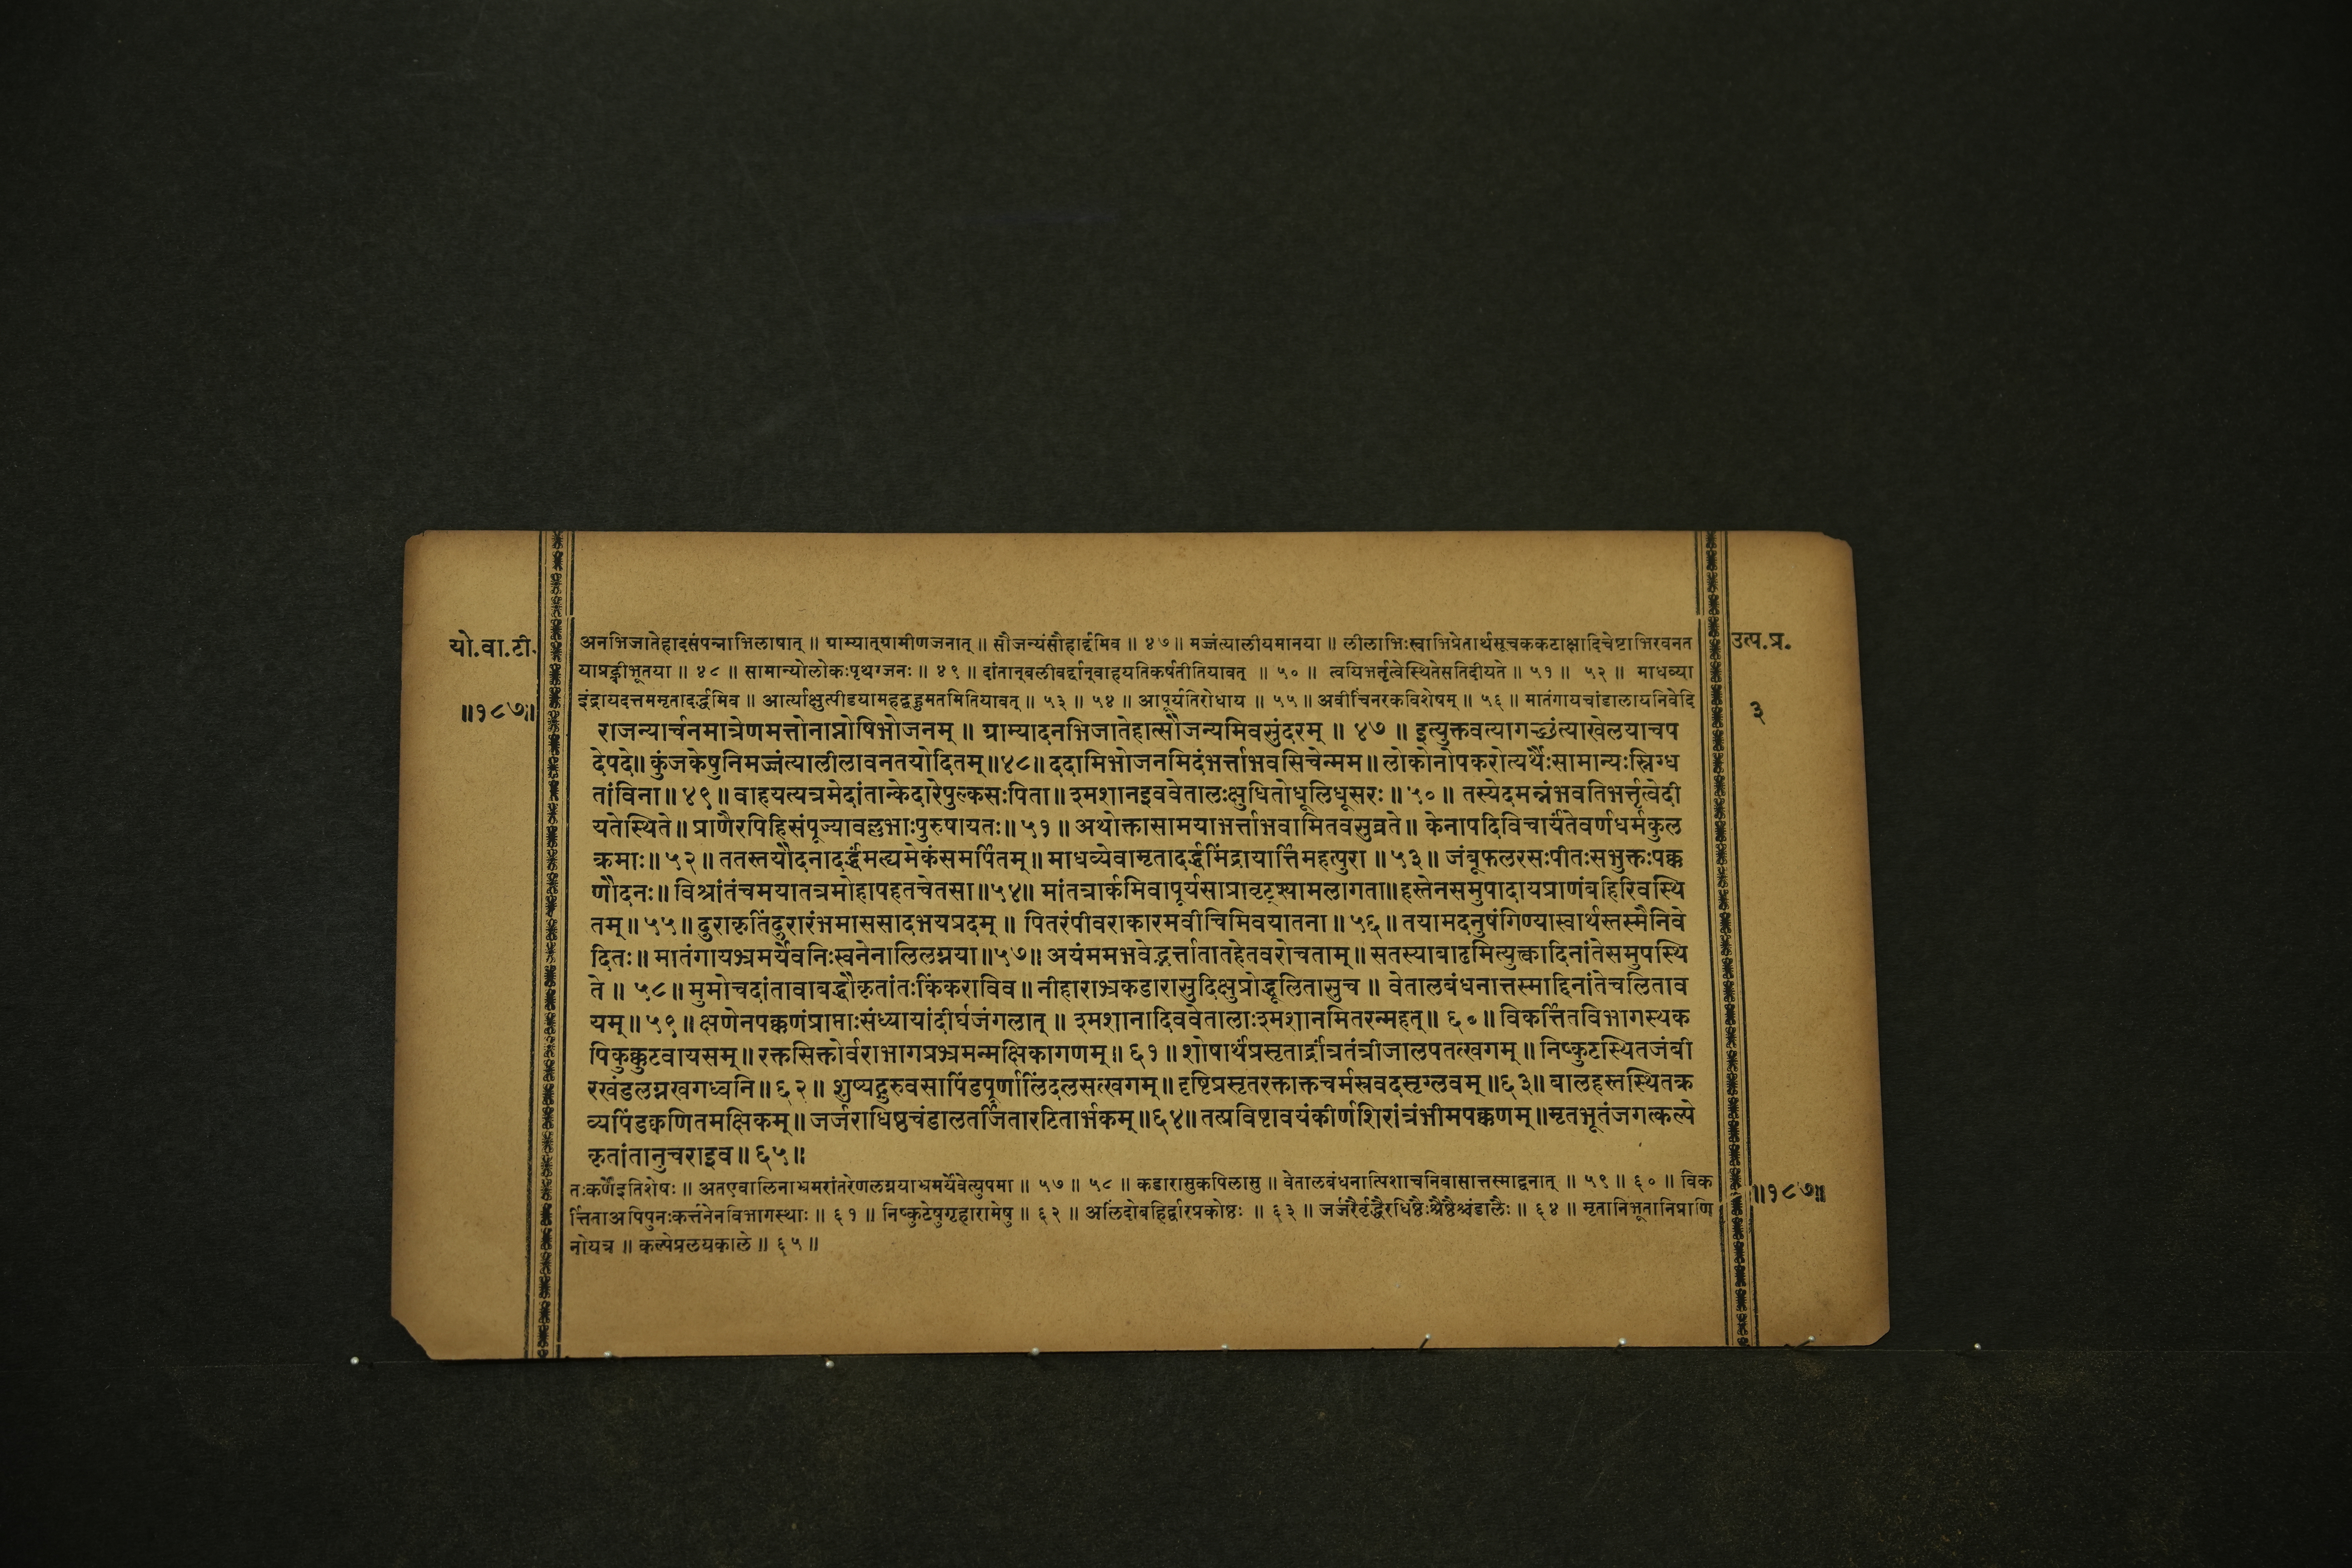 यो.वा.टी.
॥१८७॥
उत्प.प्र.
३
अनभिजातेहादसंपन्नाभिलाषात् ॥ ग्राम्यात्ग्रामीणजनात् ॥ सौजन्यंसौहार्द्दमिव ॥ ४७ ॥ मज्जंत्यालीयमानया ॥ लीलाभिःस्वाभिप्रेतार्थसूचककटाक्षादिचेष्टाभिरवनत
याप्रह्वीभूतया ॥ ४८ ॥ सामान्योलोकःपृथग्जनः ॥ ४९ ॥ दांतान्बलीवर्द्दान्वाहयतिकर्षतीतियावत् ॥ ५० ॥ त्वयिभर्तृत्वेस्थितेसतिदीयते ॥ ५१ ॥ ५२ ॥ माधव्या
इंद्रायदत्तममृतादर्द्धमिव ॥ आर्त्याक्षुत्पीडयामहद्बहुमतमितियावत् ॥ ५३ ॥ ५४ ॥ आपूर्यतिरोधाय ॥ ५५ ॥ अवीचिंनरकविशेषम् ॥ ५६ ॥ मातंगायचांडालायनिवेदि
राजन्यार्चनमात्रेणमत्तोनाप्नोषिभोजनम् ॥ ग्राम्यादनभिजातेहात्सौजन्यमिवसुंदरम् ॥ ४७ ॥ इत्युक्तवत्यागच्छंत्याखेलयाचप
देपदे॥ कुंजकेषुनिमज्जंत्यालीलावनतयोदितम्॥४८॥ ददामिभोजनमिदंभर्त्ताभवसिचेन्मम॥ लोकोनोपकरोत्यर्थैःसामान्यःस्निग्ध
तांविना॥ ४९॥ वाहयत्यत्रमेदांतान्केदारेपुल्कसःपिता॥ श्मशानइववेतालःक्षुधितोधूलिधूसरः॥ ५०॥ तस्येदमन्नंभवतिभर्त्तृत्वेदी
यतेस्थिते॥ प्राणैरपिहिसंपूज्यावल्लभाःपुरुषायतः॥ ५१॥ अथोक्तासामयाभर्त्ताभवामितवसुव्रते॥ केनापदिविचार्यंतेवर्णधर्मकुल
क्रमाः॥ ५२॥ ततस्तयौदनादर्द्धंमत्द्यमेकंसमर्पितम्॥ माधव्येवामृतादर्द्धमिंद्रायार्त्तिमहत्पुरा ॥५३॥ जंबूफलरसःपीतःसभुक्तःपक्क
णौदनः॥ विश्रांतंचमयातत्रमोहापहृतचेतसा॥५४॥ मांतत्रार्कमिवापूर्यसाप्रावृट्श्यामलागता॥हस्तेनसमुपादायप्राणंबहिरिवस्थि
तम्॥ ५५॥ दुराकृतिंदुरारंभमाससादभयप्रदम् ॥ पितरंपीवराकारमवीचिमिवयातना॥ ५६॥ तयामदनुषंगिण्यास्वार्थस्तस्मैनिवे
दितः॥ मातंगायभ्रमर्येवनिःस्वनेनालिलग्नया॥५७॥ अयंममभवेद्भर्त्तातातहेतवरोचताम्॥ सतस्याबाढमित्युत्त्कादिनांतेसमुपस्थि
ते ॥ ५८॥ मुमोचदांतावाबद्धौकृतांतःकिंकराविव॥ नीहाराभ्रकडारासुदिक्षुप्रोद्धूलितासुच ॥ वेतालबंधनात्तस्माद्दिनांतेचलिताव
यम्॥ ५९॥ क्षणेनपक्कणंप्राप्ताःसंध्यायांदीर्घजंगलात् ॥ श्मशानादिववेतालाःश्मशानमितरन्महत्॥ ६०॥ विकर्त्तितविभागस्थक
पिकुक्कुटवायसम्॥ रक्तसिक्तोर्वराभागप्रभ्रमन्मक्षिकागणम्॥ ६१॥ शोषार्थंप्रसृतार्द्रांत्रतंत्रीजालपतत्खगम्॥ निष्कुटस्थितजंबी
रखंडलग्नखगध्वनि॥ ६२॥ शुष्यद्गुरुवसापिंडपूर्णालिंदलसत्खगम्॥ दृष्टिप्रसृतरक्ताक्तचर्मस्रवदसृग्लवम् ॥६३॥ बालहस्तस्थितक्र
व्यपिंडक्वणितमक्षिकम्॥ जर्जराधिष्ठचंडालतर्जितारटितार्भकम्॥ ६४॥ तत्प्रविष्टावयंकीर्णशिरांत्रंभीमपक्कणम्॥मृतभूतंजगत्कल्पे
कृतांतानुचराइव॥ ६५॥
तःकर्णेइतिशेषः ॥ अतएवालिनाभ्रमरांतरेणलग्नयाभ्रमर्येवेत्युपमा ॥ ५७ ॥ ५८ ॥ कडारासुकपिलासु ॥ वेतालबंधनात्पिशाचनिवासात्तस्माद्वनात् ॥ ५९ ॥ ६० ॥ विक
र्त्तिताअपिपुनःकर्त्तनेनविभागस्थाः ॥ ६१ ॥ निष्कुटेषुगृहारामेषु ॥ ६२ ॥ अलिंदोबहिर्द्वारप्रकोष्ठः ॥ ६३ ॥ जर्जरैर्वृद्धैरधिष्ठैःश्रेष्ठैश्चंडालैः ॥ ६४ ॥ मृतानिभूतानिप्राणि
नोयत्र ॥ कल्पेप्रलयकाले ॥ ६५ ॥
॥१८७॥